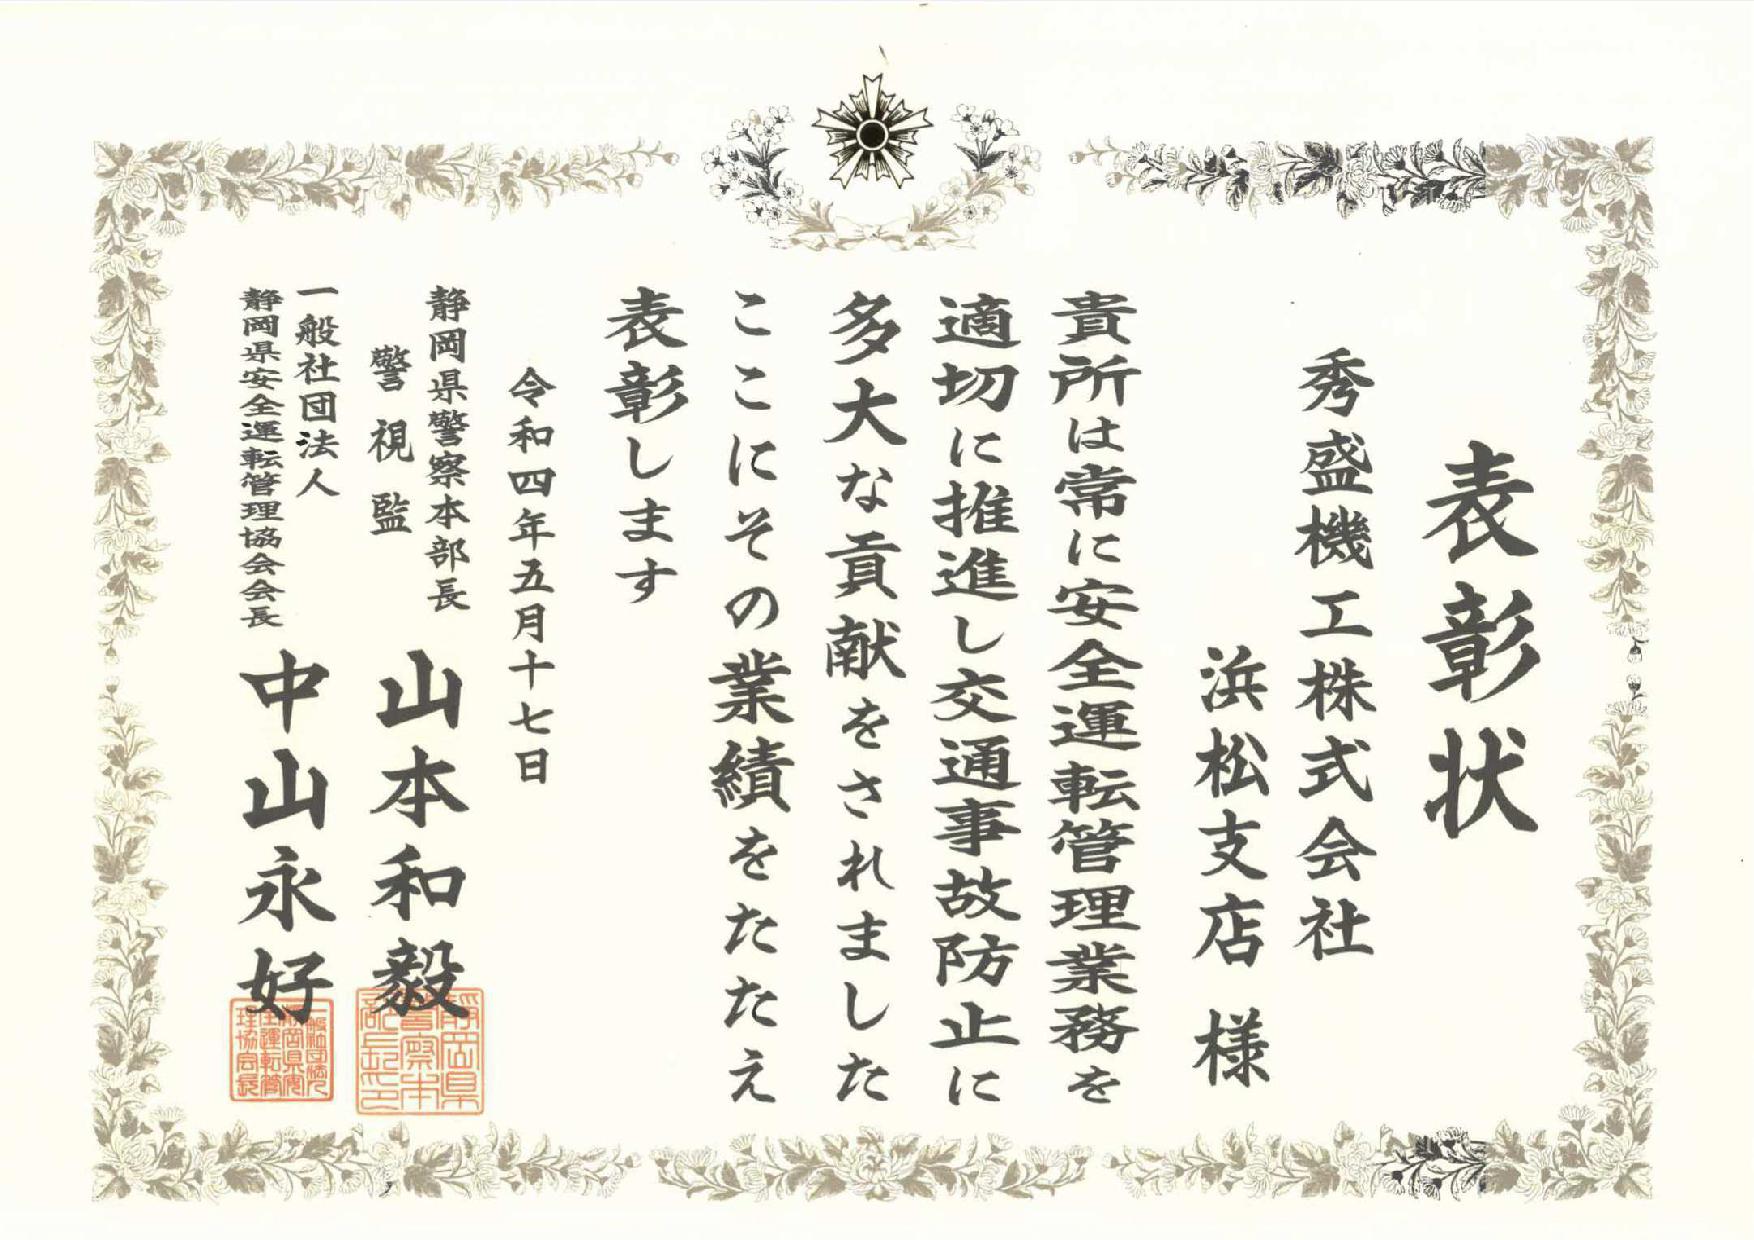 表彰状
秀盛機工株式会社
浜松支店 様
貴所は常に安全運転管理業務を
適切に推進し交通事故防止に
多大な貢献をされました
ここにその業績をたたえ
表彰します
令和四年五月十七日
静岡県警察本部長
警視監 山本和毅
一般社団法人
静岡県安全運転管理協会会長 中山永好
静岡県
警察本
部長印